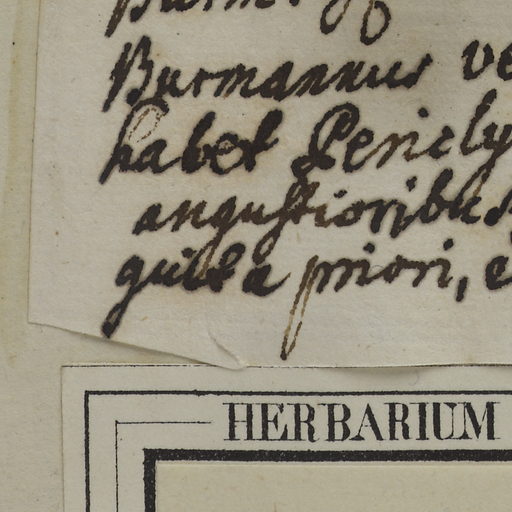 Burmannus ve
habet Pericly
angustioribus
a priori, e
HERBARIUM